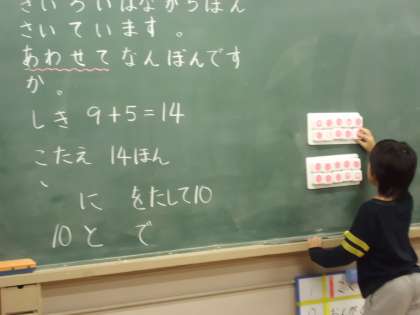 きいろいはなが5ほん
さいています。
あわせてなんぼんです
か。
しき 9+5=14
こたえ 14ほん
に をたして10
10と で